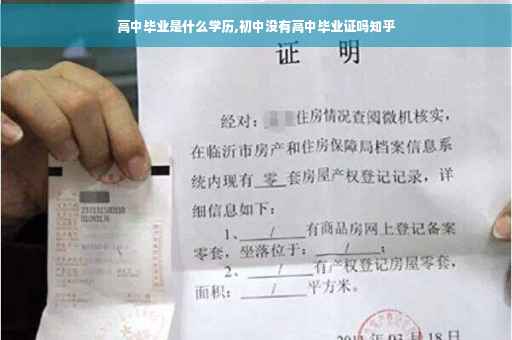 高中毕业是什么学历,初中没有高中毕业证吗知乎
证 明
经对: 住房情况查阅微机核实,
在临沂市房产和住房保障局档案信息系
统内现有 零 套房屋产权登记记录,详
细信息如下:
1、 / 有商品房网上登记备案
零套,坐落位于: / ;
2、 / 有产权登记房屋零套,
面积: / 平方米。
03月18日